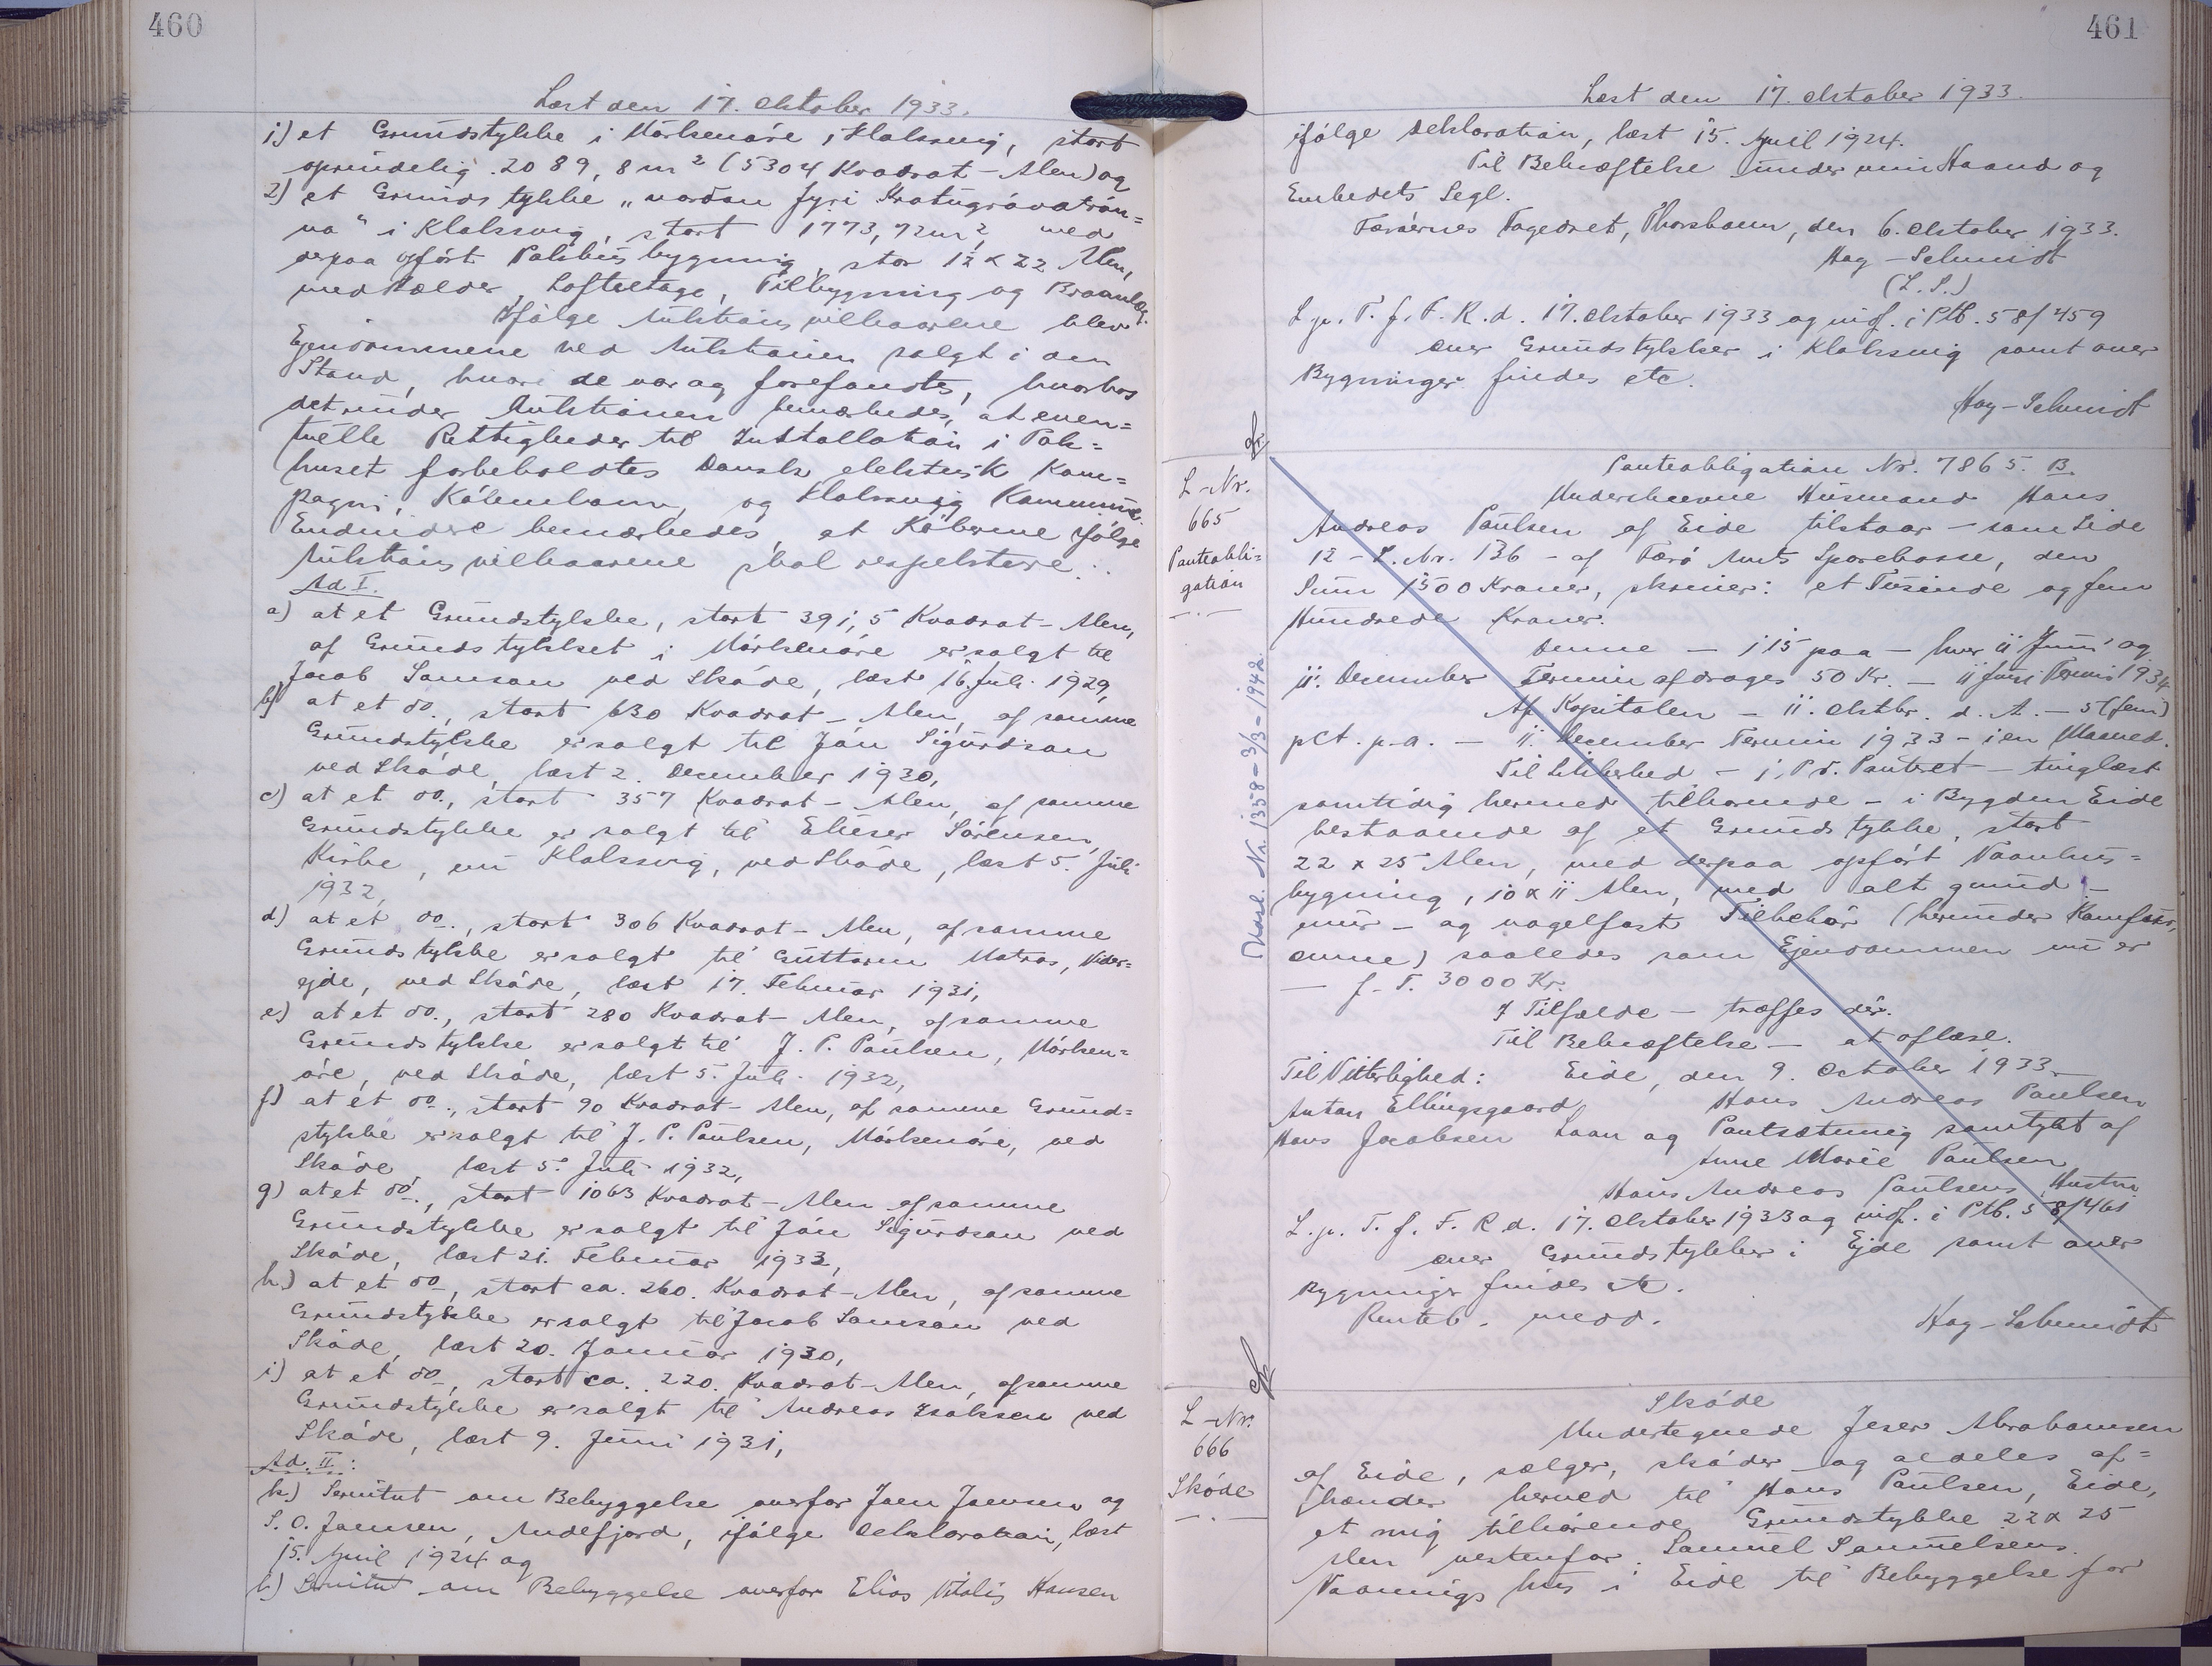 460
Læst den 17. Oktober 1933.
1) et Grundstykke i Mørkenøre, Klaksvig, stort
oprindelig 2089,8 m² (5304 Kvadrat-Alen) og
2) et Grundstykke „nordan fyri
va" i Klaksvig, stort 1773,72 m², med
derpaa opført Pakhusbygning, stor 12 x 22 Alen,
med Kælder, Loftsetage, Tilbygning og
Ifølge Auktionsvilkaarene blev
Ejendommene ved Auktionen solgt i den
Stand, hvori de var og forefandtes, hvorhos
det under Auktionen bemærkedes, at even=
tuelle Rettigheder til Installation i Pak=
huset forbeholdtes Dansk elektrisk Kom=
pagni, København, og Klaksvig Kommune.
Endvidere bemærkedes, at Køberne ifølge
Auktionsvilkaarene skal respektere:
Ad I.
a) at et Grundstykke, stort 391,5 Kvadrat-Alen,
af Grundstykket i Mørkenøre er solgt til
Jacob Samson ved Skøde, læst 16. Juli 1929,
b) at et do., stort 630 Kvadrat-Alen, af samme
Grundstykke er solgt til Ján Sigurdson
ved Skøde, læst 2. December 1930,
c) at et do., stort 357 Kvadrat-Alen, af samme
Grundstykke er solgt til Elieser Sørensen,
Kirke, nu Klaksvig, ved Skøde, læst 5. Juli
1932,
d) at et do., stort 306 Kvadrat-Alen, af samme
Grundstykke er solgt til Guttorm Matras, Vider=
ejde, ved Skøde, læst 17. Februar 1931,
e) at et do., stort 280 Kvadrat-Alen, af samme
Grundstykke er solgt til J. P. Paulsen, Mørken=
øre, ved Skøde, læst 5. Juli 1932,
f) at et do., stort 90 Kvadrat-Alen, af samme Grund=
stykke er solgt til J. P. Paulsen, Mørkenøre, ved
Skøde, læst 5. Juli 1932,
g) at et do., stort 1063 Kvadrat-Alen af samme
Grundstykke er solgt til Ján Sigurdson ved
Skøde, læst 21. Februar 1933,
h) at et do, stort ca. 260. Kvadrat-Alen, af samme
Grundstykke er solgt til Jacob Samson ved
Skøde, læst 20. Januar 1930,
i) at et do, stort ca. 220. Kvadrat-Alen, af samme
Grundstykke er solgt til Andreas Isaksen ved
Skøde, læst 9. Juni 1931,
Ad. II:
k) Servitut om Bebyggelse overfor Joen Joensen og
S. O. Joensen, Andefjord, ifølge Deklaration, læst
15. April 1924 og
l) Servitut om Bebyggelse overfor Elias Vitalis Hansen
461
Læst den 17. Oktober 1933.
ifølge Deklaration, læst 15. April 1924.
Til Bekræftelse under min Haand og
Embedets Segl.
Færøernes Fogedret, Thorshavn, den 6. Oktober 1933.
Hag-Schmidt
(L. S.)
L. p. T. f. F. R. d. 17. Oktober 1933 og indf. i Ptb. 58/459
over Grundstykker i Klaksvig samt over
Bygninger findes etc.
Hag-Schmidt
L-Nr.
665
Panteobli=
gation
Kasl. Nr. 1358-3/3-1942.
Panteobligation Nr. 7865. B.
Underskrevne Husmand Hans
Andreas Paulsen af Eide tilstaar - som Side
12 - L. Nr. 136 - af Færø Amts Sparekasse, den
Sum 1500 Kroner, skriver: et Tusinde og fem
Hundrede Kroner.
Denne - i 15 paa - hver 11 Juni og
11. December Termin afdrages 50 Kr. - 11 Juni Termin 1934
Af Kapitalen - 11. Oktbr. d. A. - 5 (fem)
pCt. p.a. - 11. December Termin 1933 - i en Maaned.
Til Sikkerhed - 1. Pr. Panteret - tinglæst
samtidig hermed tilhørende - i Bygden Eide
bestaaende af et Grundstykke, stort
22 x 25 Alen, med derpaa opført Vaanhus=
bygning, 10 x 11 Alen, med alt grund-
mur- og nagelfast Tilbehør (herunder Komfur,
ovne) saaledes som Ejendommen nu er
- f. T. 3000 Kr.
I Tilfælde - træffes dér.
Til Bekræftelse - at aflæse.
Til Vitterlighed: Eide, den 9. October 1933.
Anton Ellingsgaard Hans Andreas Paulsen
Hans Jacobsen Laan og Pantsætning samtykt af
Anne Marie Paulsen
Hans Andreas Paulsens Hustru
L. p. T. f. F. R d. 17. Oktober 1933 og indf. i Ptb. 58/461
over Grundstykker i Ejde samt over
Bygninger findes etc.
Renteb. medd. Hag-Schmidt
L-Nr.
666
Skøde
Skøde
Undertegnede Jeser Abrahamsen
af Eide, sælger, skøder og aldeles af=
hænder herved til Hans Paulsen, Eide,
et mig tilhørende Grundstykke 22 x 25
Alen vestenfor Samuel Samuelsens
Vaanings hus i Eide til Bebyggelse for